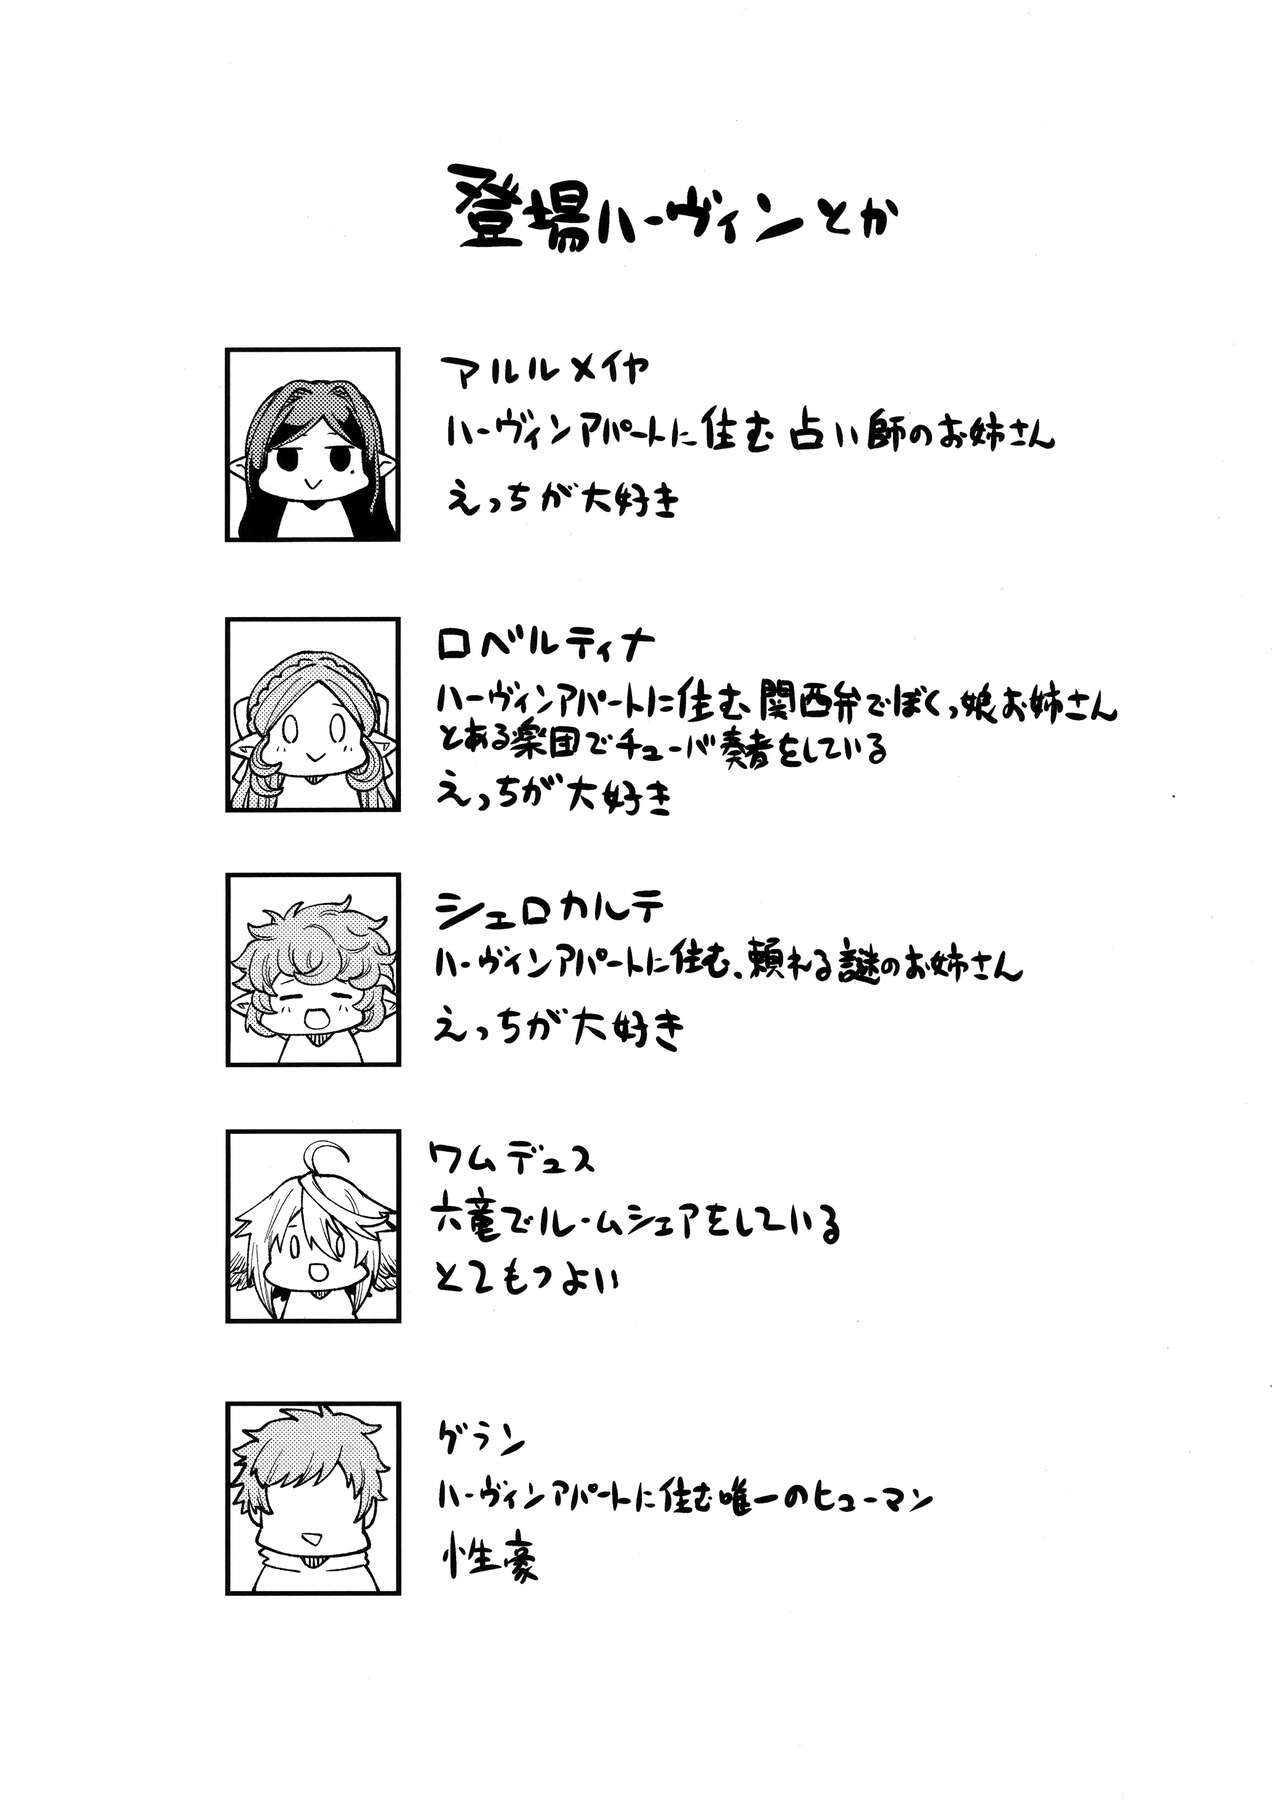 登場ハーヴィンとか
アルルメイヤ
ハーヴィンアパートに住む占い師のお姉さん
えっちが大好き
ロベルティナ
ハーヴィンアパートに住む、関西弁でぼくっ娘お姉さん
とある楽団でチューバ奏者をしている
えっちが大好き
シェロカルテ
ハーヴィンアパートに住む、頼れる謎のお姉さん
えっちが大好き
ワムデュス
六竜でルームシェアをしている
とてもつよい
グラン
ハーヴィンアパートに住む唯一のヒューマン
性豪